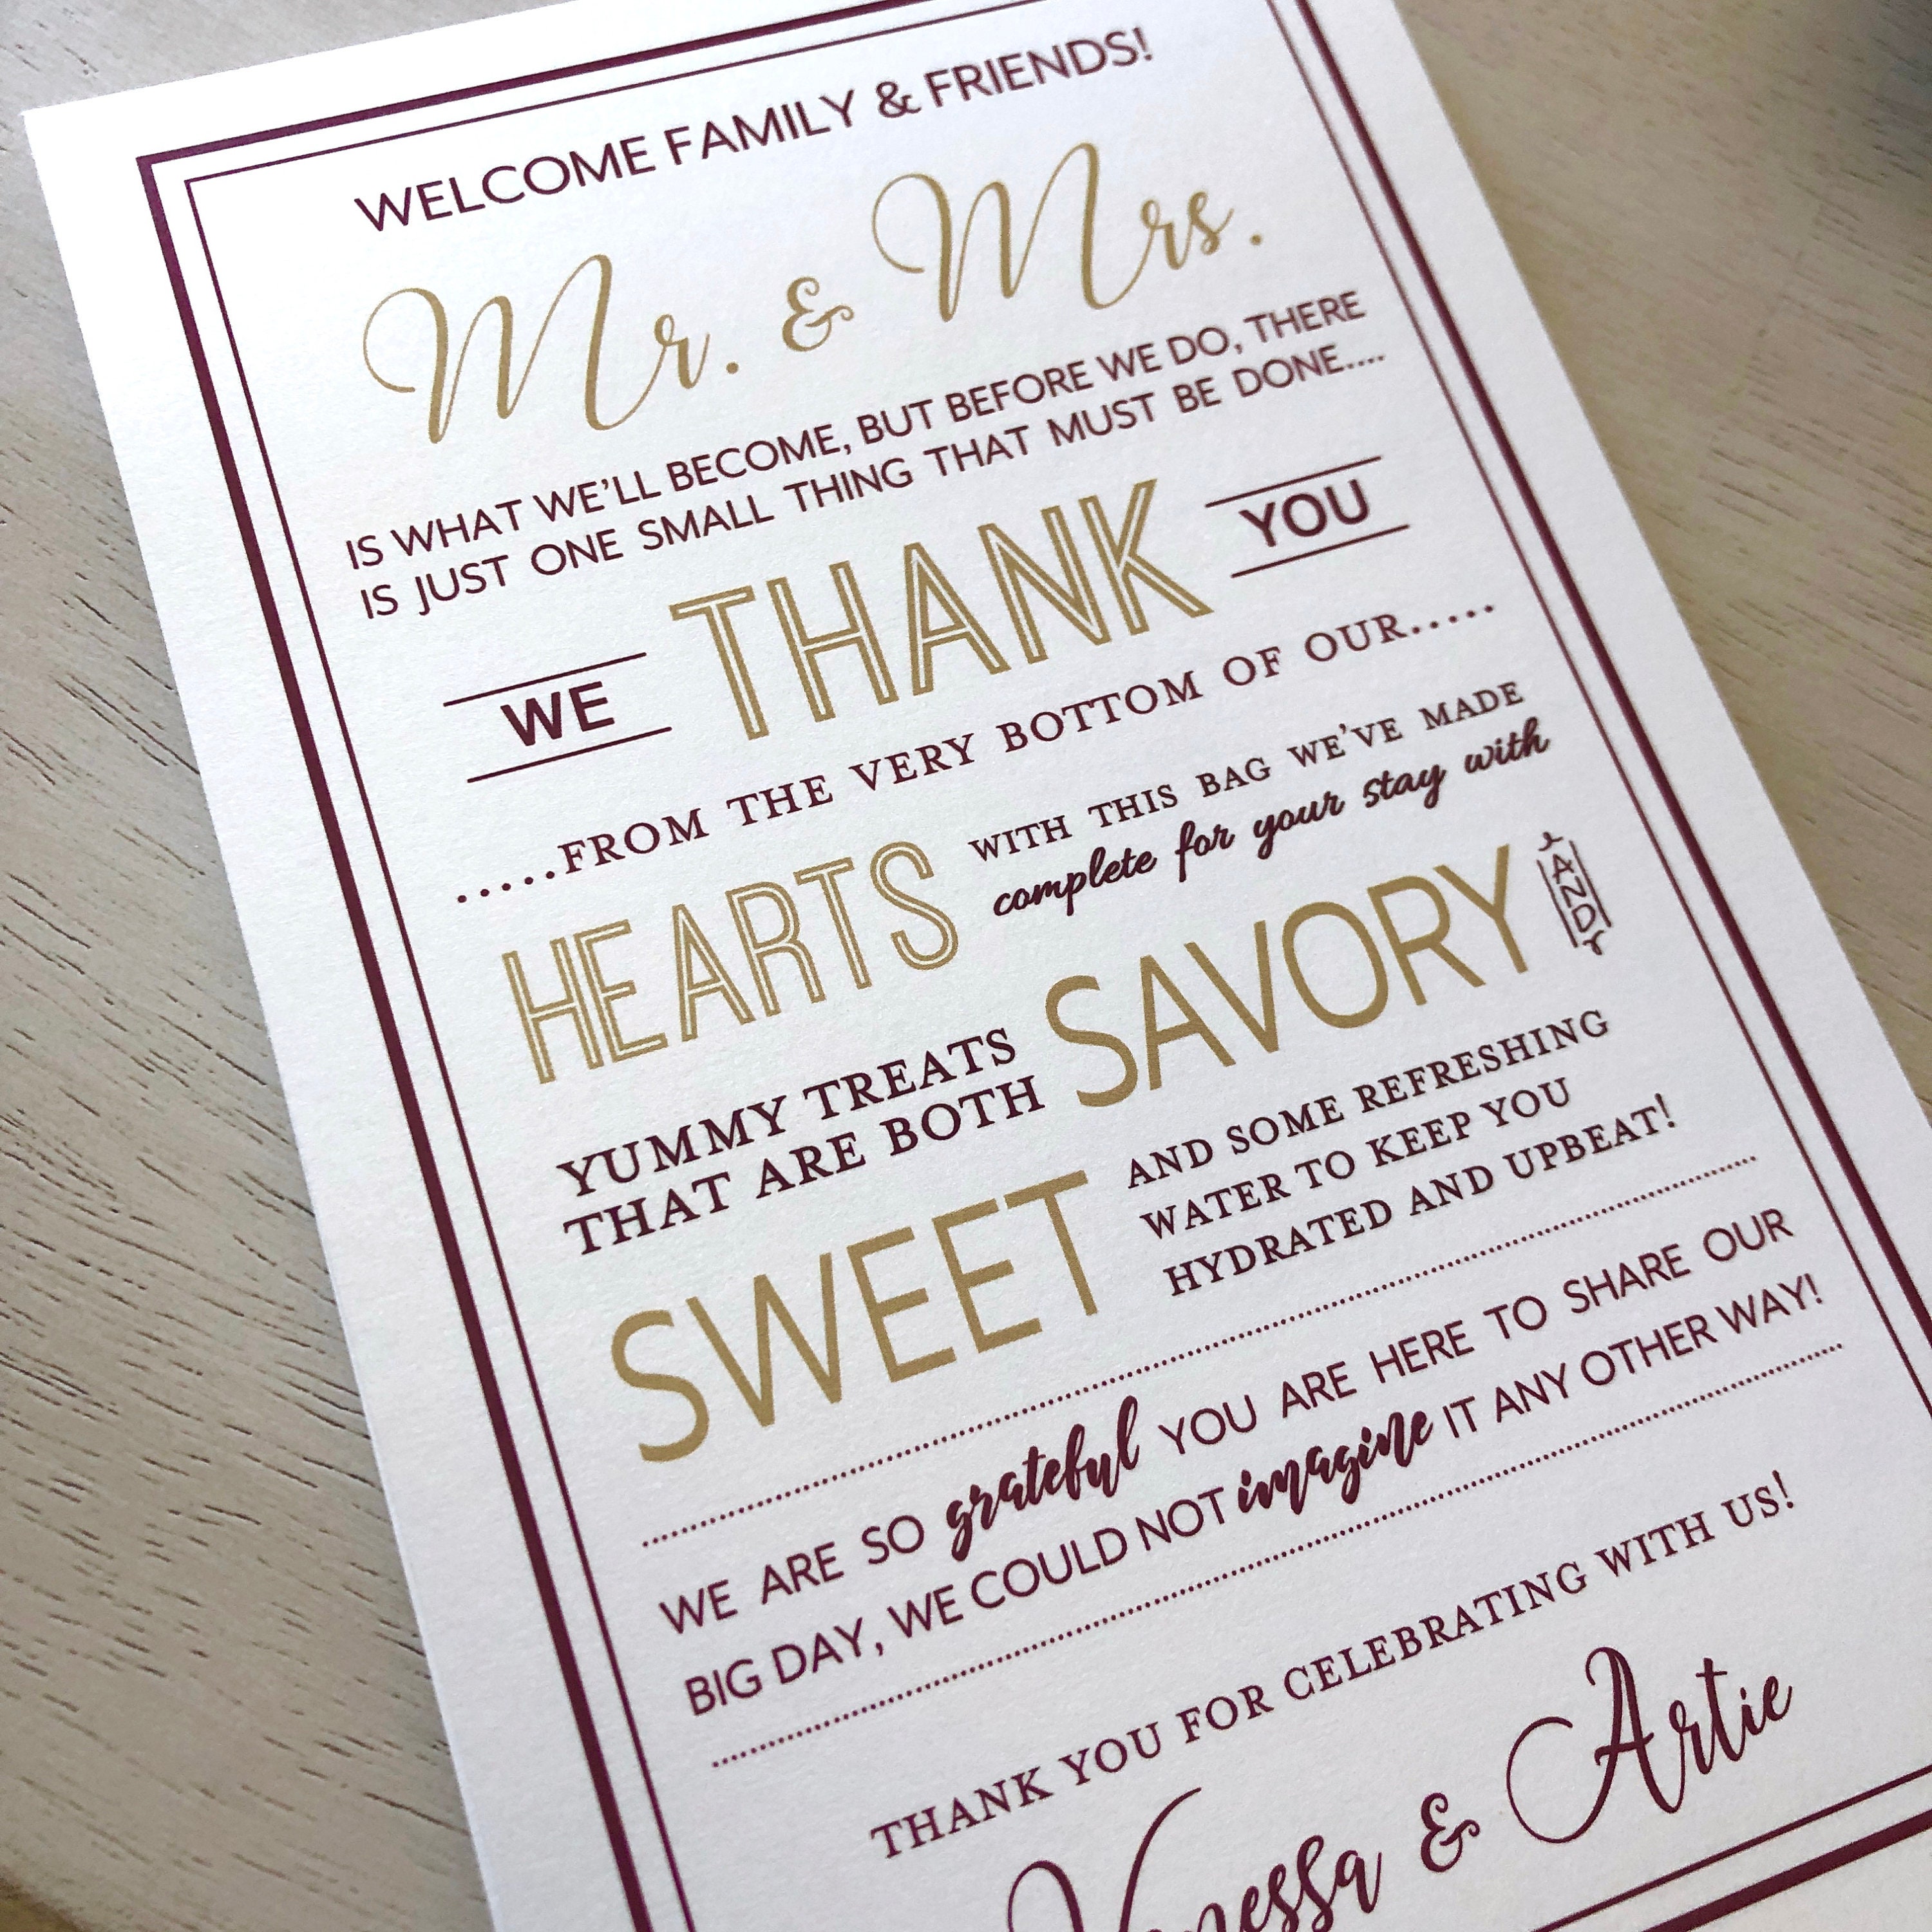 WELCOME FAMILY & FRIENDS!
Mr. & Mrs.
IS WHAT WE'LL BECOME, BUT BEFORE WE DO, THERE
IS JUST ONE SMALL THING THAT MUST BE DONE....
WE THANK YOU
.....FROM THE VERY BOTTOM OF OUR.....
HEARTS WITH THIS BAG WE'VE MADE
complete for your stay with
YUMMY TREATS
THAT ARE BOTH SAVORY AND
SWEET AND SOME REFRESHING
WATER TO KEEP YOU
HYDRATED AND UPBEAT!
WE ARE SO grateful YOU ARE HERE TO SHARE OUR
BIG DAY, WE COULD NOT imagine IT ANY OTHER WAY!
THANK YOU FOR CELEBRATING WITH US!
Vanessa & Artie